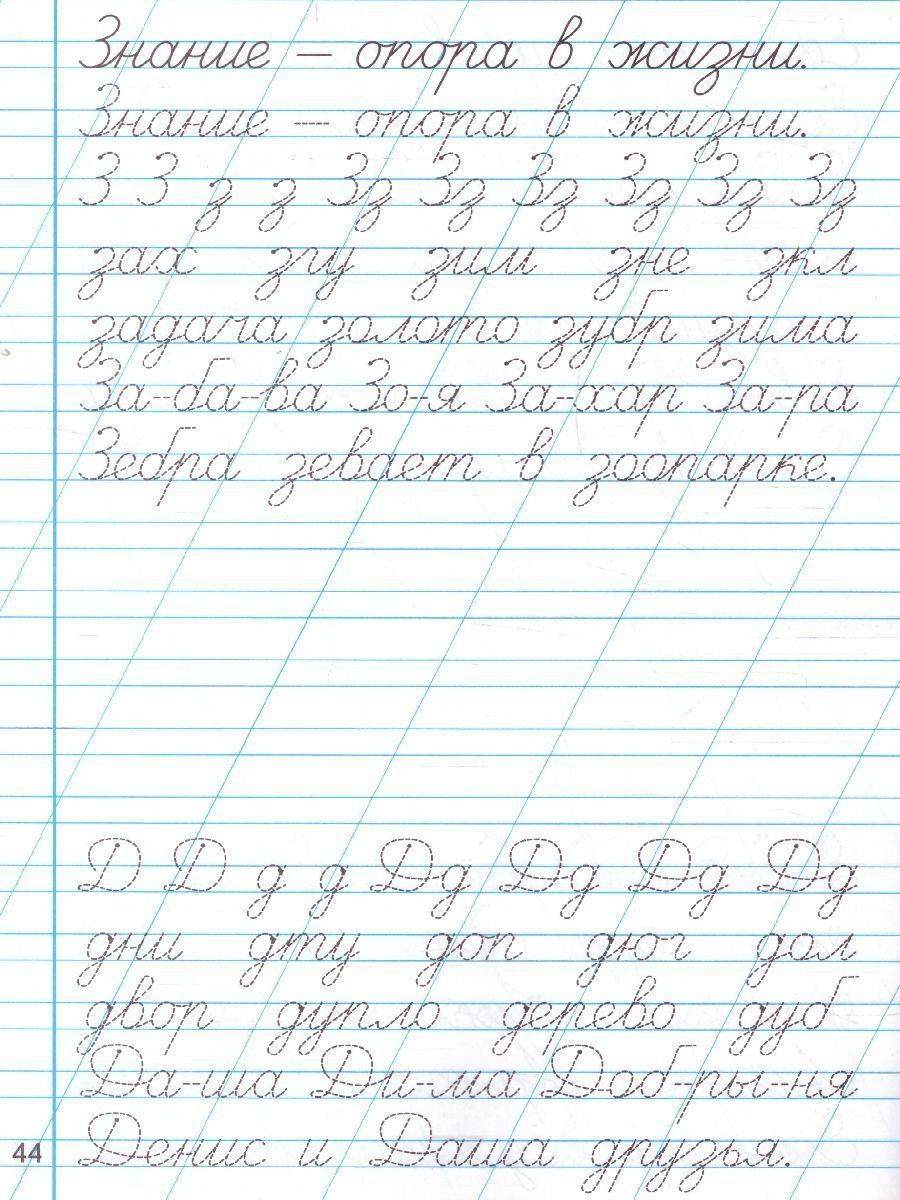 Знание – опора в жизни.
Знание – опора в жизни.
З З з з Зз Зз Зз Зз Зз Зз
зах згу зим зне зкл
задача золото зубр зима
За-ба-ва Зо-я За-хар За-ра
Зебра зевает в зоопарке.
Д Д д д Дд Дд Дд Дд
дни дту доп дюг дол
двор дупло дерево дуб
Да-ша Ди-ма Доб-ры-ня
Денис и Даша друзья.
44